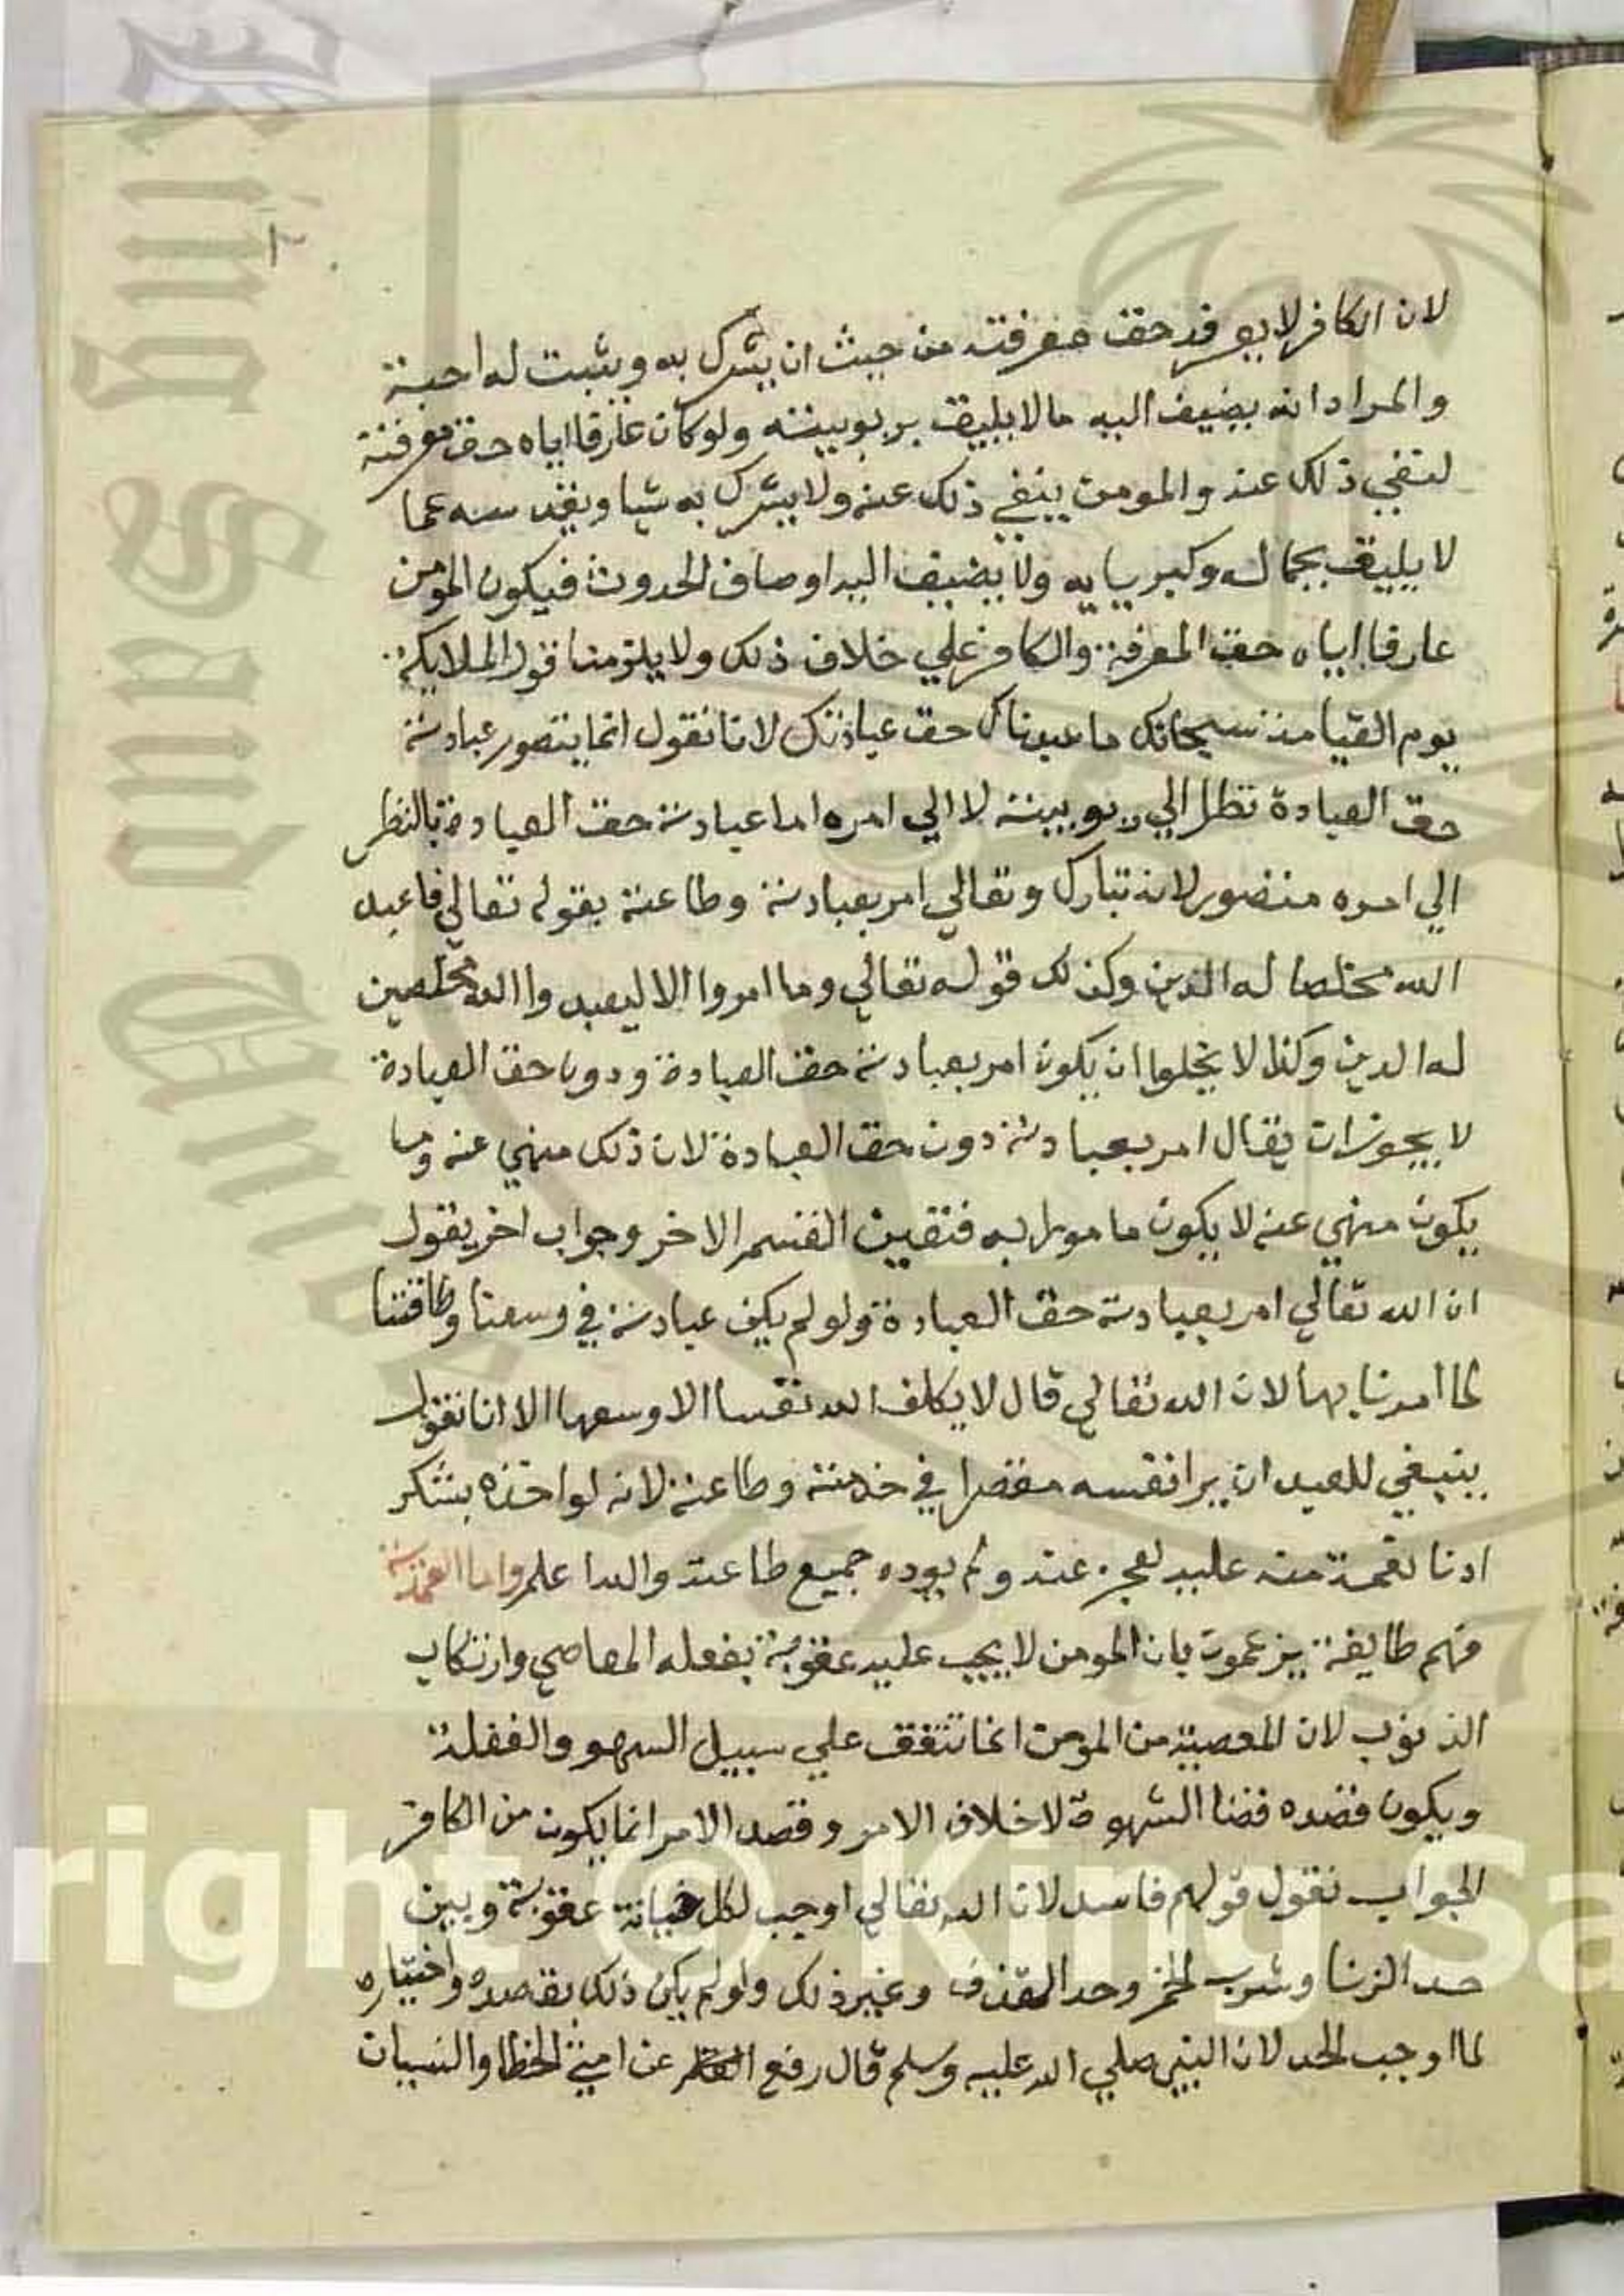 لان الكافر لا يعرفه حق معرفته من حيث ان يشرك به ويثبت له احبة
والمراد انه يضيف اليه ما لا يليق بربوبيته ولو كان عارفا اياه حق معرفته
لنفي ذلك عنه والمومن ينفي ذلك عنه ولا يشرك به شيا ويقدسه عما
لا يليق بجماله وكبريايه ولا يضيف اليه اوصاف الحدوث فيكون المومن
عارفا اياه حق المعرفة والكافر علي خلاف ذلك ولا يلزمنا قول الملايكة
يوم القيامة سبحانك ما عبدناك حق عبادتك لانا نقول انما يتصور عبادته
حق العبادة نظرا الي ربوبيته لا الي امره اما عبادته حق العبادة بالنظر
الي امره متصور لانه تبارك وتعالي امر بعبادته وطاعته بقوله تعالي فاعبد
الله مخلصا له الدين وكذلك قوله تعالي وما امروا الا ليعبدوا الله مخلصين
له الدين وكذا لا يخلوا ان يكون امر بعبادته حق العبادة ودون حق العبادة
لا يجوز ان يقال امر بعبادته دون حق العبادة لان ذلك منهي عنه وما
يكون منهي عنه لا يكون مامورا به فتعين القسم الاخر وجواب اخر يقول
ان الله تعالي امر بعبادته حق العبادة ولو لم يكن عبادته في وسعنا وطاقتنا
لما امرنا بها لان الله تعالي قال لا يكلف الله نفسا الا وسعها الا انا نقول
ينبغي للعبد ان يرا نفسه مقصرا في خدمته وطاعته لانه لو اخذه بشكر
ادنا نعمة منه عليه لعجز عنه ولم يوده جميع طاعته والله اعلم واما العمدية
فهم طايفة يزعمون بان المومن لا يجب عليه عقوبة بفعله المعاصي وارتكاب
الذنوب لان المعصية من المومن انما تتفق علي سبيل السهو والغفلة
ويكون قصده قضا الشهوة لا خلاف الامر وقصد الامر انما يكون من الكافر
الجواب نقول قولهم فاسد لان الله تعالي اوجب لكل خيانة عقوبة وبين
حد الزنا وشرب الخمر وحد القذف وغير ذلك ولو لم يكن ذلك بقصده واختياره
لما اوجب الحد لان النبي صلي الله عليه وسلم قال رفع القلم عن امتي الخطا والنسيان
right © King Sa